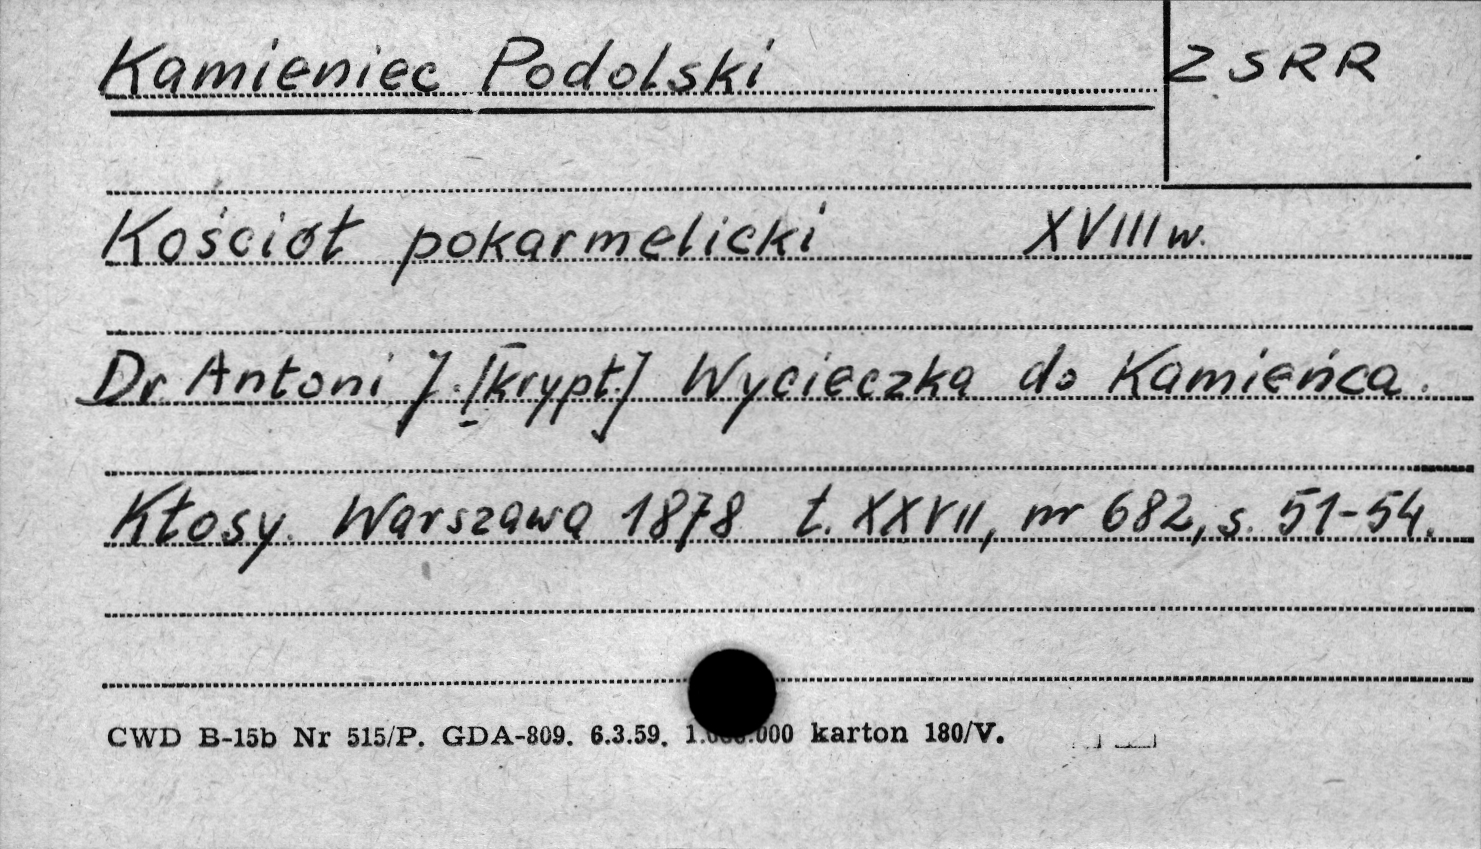 Kamieniec Podolski ZSRR
Kościół pokarmelicki XVIII w.
Dr Antoni J. [krypt.] Wycieczka do Kamieńca.
Kłosy. Warszawa 1878 t. XXVII, nr 682, s. 51-54.
CWD B-15b Nr 515/P. GDA-809. 6.3.59. 1.000.000 karton 180/V.